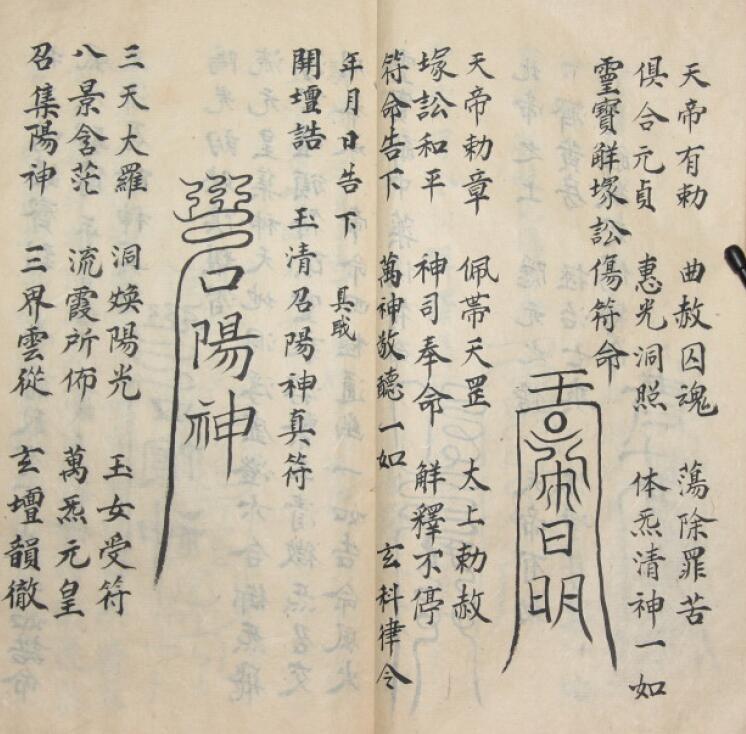 天帝有勅 曲赦囚魂 蕩除罪苦
俱合元貞 惠光洞照 体炁清神一如
靈寶解塚訟傷符命
日明
天帝勅章 佩帯天罡 太上勅赦
塚訟和平 神司奉命 解釋不停
符命告下 萬神敬聽一如 玄科律令
年月日告下 具戝
開壇誥 玉清召陽神真符
召陽神
三天大羅 洞煥陽光 玉女受符
八景含茫 流霞所佈 萬炁元皇
召集陽神 三界雲從 玄壇韻徹